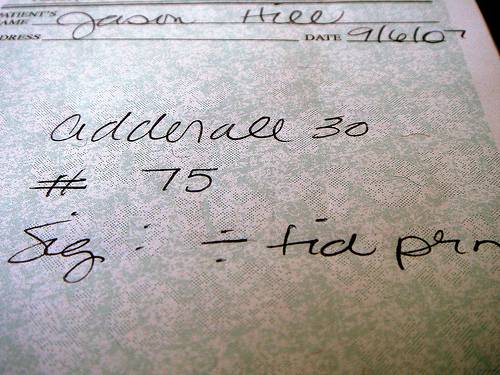 PATIENT'S
NAME Jason Hill
DRESS DATE 9/6/07
adderall 30
# 75
Sig: ÷ tid prn